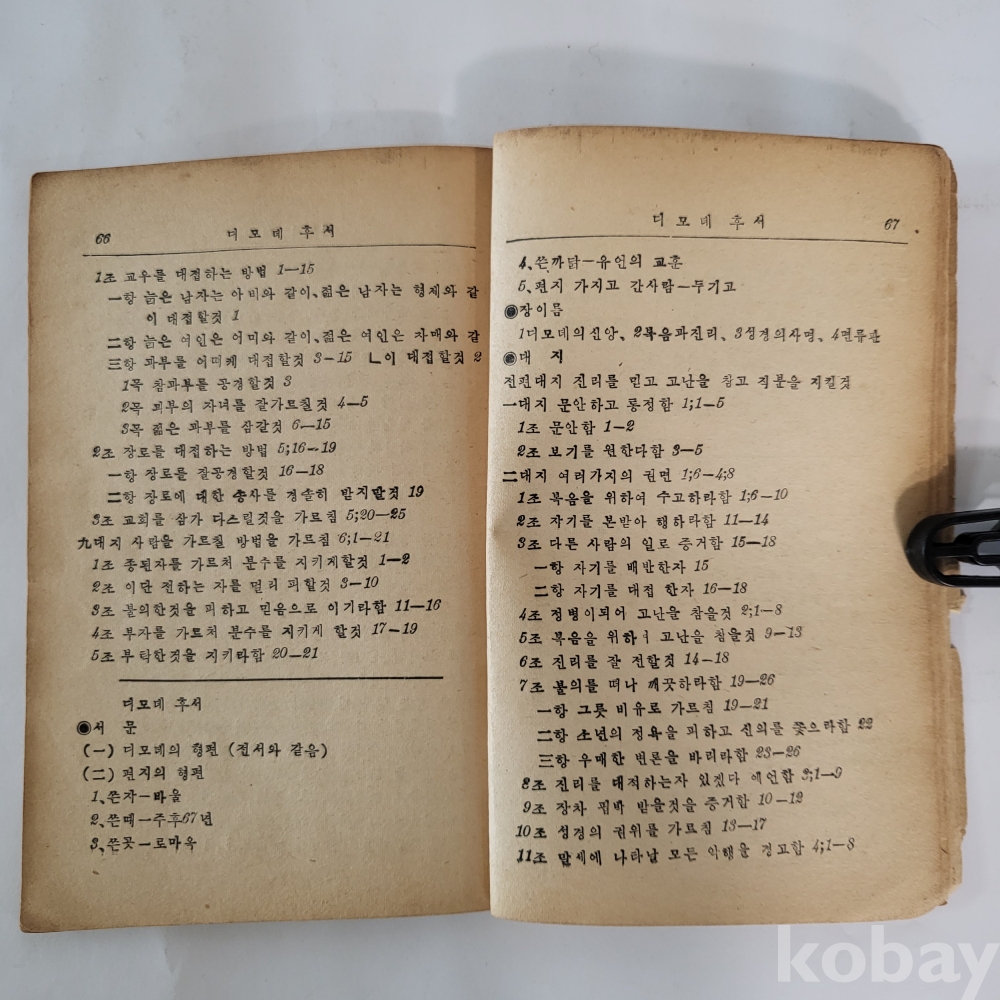 66 더모데 후서
1조 교우를 대접하는 방법 1—15
一항 늙은 남자는 아비와 같이、젊은 남자는 형제와 같
이 대접할것 1
二항 늙은 여인은 어미와 같이、젊은 여인은 자매와 같
三항 과부를 어떠케 대접할것 3—15 ㄴ이 대접할것 2
1목 참과부를 공경할것 3
2목 과부의 자녀를 잘가르칠것 4—5
3목 젊은 과부를 삼갈것 6—15
2조 장로를 대접하는 방법 5;16—19
一항 장로를 잘공경할것 16—18
二항 장로에 대한 송사를 경솔히 받지말것 19
3조 교회를 삼가 다스릴것을 가르침 5;20—25
九대지 사람을 가르칠 방법을 가르침 6;1—21
1조 종된자를 가르처 분수를 지키게할것 1—2
2조 이단 전하는 자를 멀리 피할것 3—10
3조 불의한것을 피하고 믿음으로 이기라함 11—16
4조 부자를 가르처 분수를 지키게 할것 17—19
5조 부탁한것을 지키라함 20—21
더모데 후서
◉서 문
(一) 더모데의 형편 (전서와 같음)
(二) 편지의 형편
1、쓴자—바울
2、쓴때—주후67년
3、쓴곳—로마옥
더모데 후서 67
4、쓴까닭—유언의 교훈
5、편지 가지고 간사람—두기고
◉장이름
1더모데의신앙、2복음과진리、3성경의사명、4면류관
◉대 지
전편대지 진리를 믿고 고난을 참고 직분을 지킬것
一대지 문안하고 통정함 1;1—5
1조 문안함 1—2
2조 보기를 원한다함 3—5
二대지 여러가지의 권면 1;6—4;8
1조 복음을 위하여 수고하라함 1;6—10
2조 자기를 본받아 행하라함 11—14
3조 다른 사람의 일로 증거함 15—18
一항 자기를 배반한자 15
二항 자기를 대접 한자 16—18
4조 정병이되어 고난을 참을것 2;1—8
5조 복음을 위하 고난을 참을것 9—13
6조 진리를 잘 전할것 14—18
7조 불의를 떠나 깨끗하라함 19—26
一항 그릇 비유로 가르침 19—21
二항 소년의 정욕을 피하고 신의를 쫓으라함 22
三항 우매한 변론을 바리라함 23—26
8조 진리를 대적하는자 있겠다 예언함 3;1—9
9조 장차 핍박 받을것을 증거함 10—12
10조 성경의 권위를 가르침 13—17
11조 말세에 나타날 모든 악행을 경고함 4;1—8
kobay